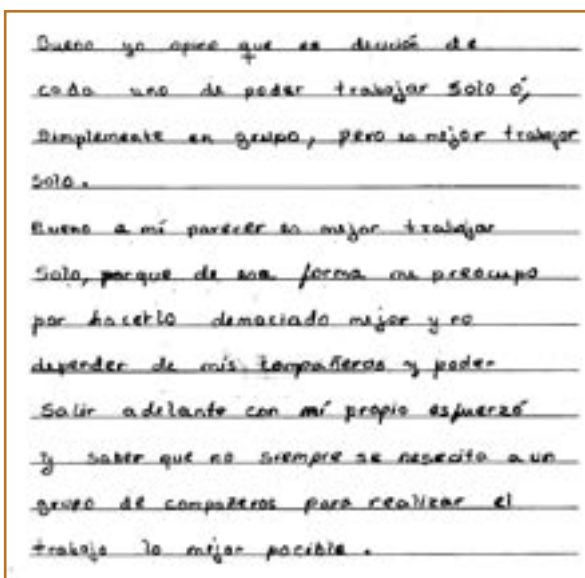 Bueno yo opino que es decición de
cada uno de poder trabajar solo ó,
simplemente en grupo, pero es mejor trabajar
solo.
Bueno a mí parecer es mejor trabajar
solo, porque de esa forma me preocupo
por hacerlo demaciado mejor y no
depender de mis compañeros y poder
salir adelante con mí propio esfuerzó
y saber que no siempre se nesecita a un
grupo de compañeros para realizar el
trabajo lo mejor pocible.